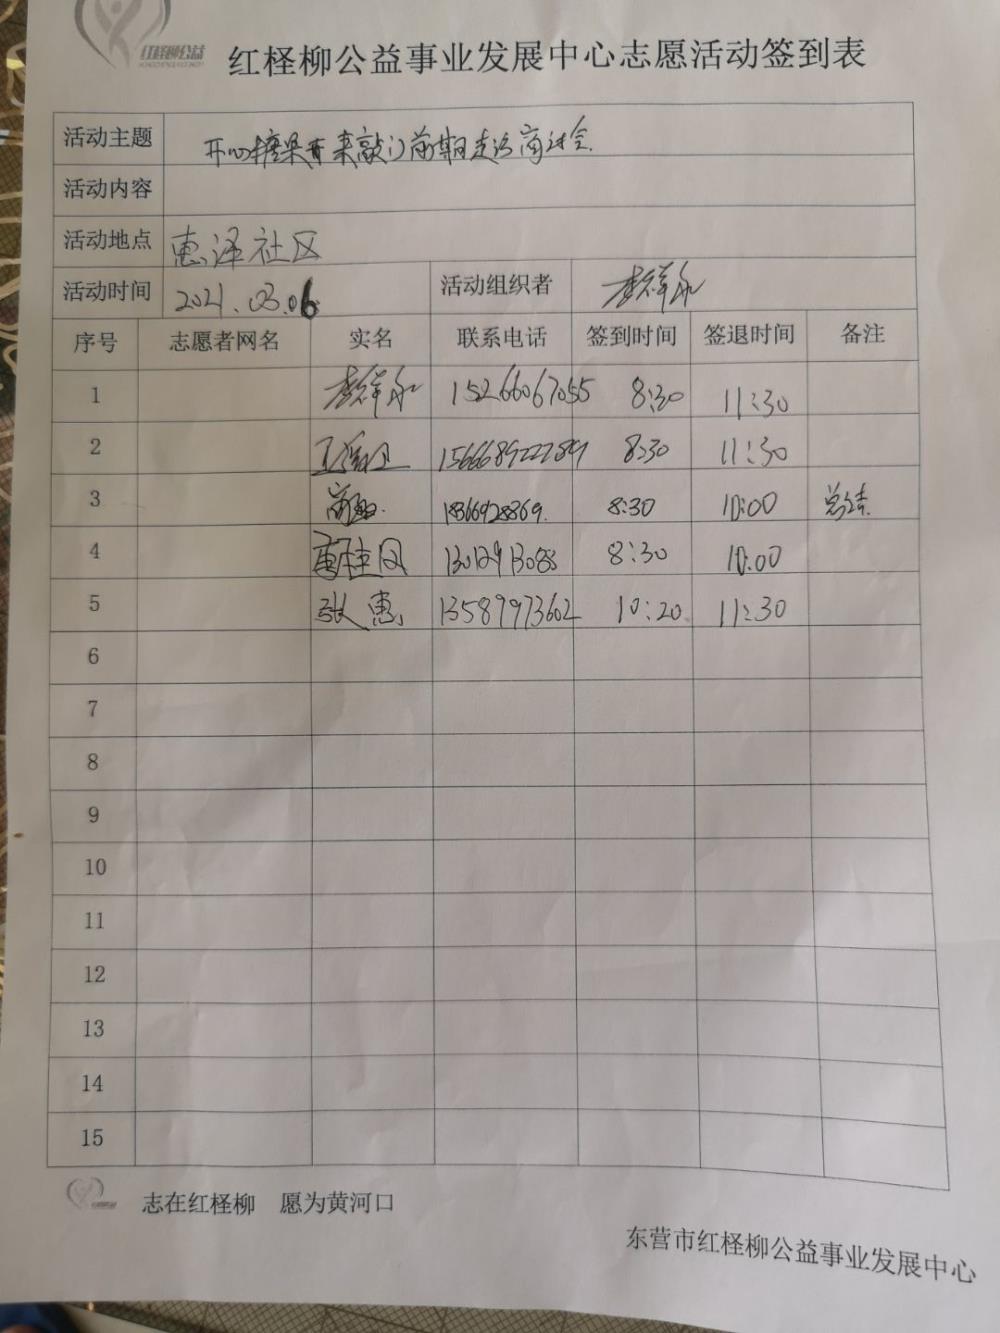 红柽柳公益
红柽柳公益事业发展中心志愿活动签到表
活动主题 开心糖果 来敲门前期走访商讨会
活动内容
活动地点 惠泽社区
活动时间 2021.03.06 活动组织者 李祥永
序号 志愿者网名 实名 联系电话 签到时间 签退时间 备注
1 李祥永 15266067055 8:30 11:30
2 8:30 11:30
3 8:30 10:00 总结
4 8:30 10:00
5 张惠 13589973602 10:20 11:30
6
7
8
9
10
11
12
13
14
15
志在红柽柳 愿为黄河口
东营市红柽柳公益事业发展中心